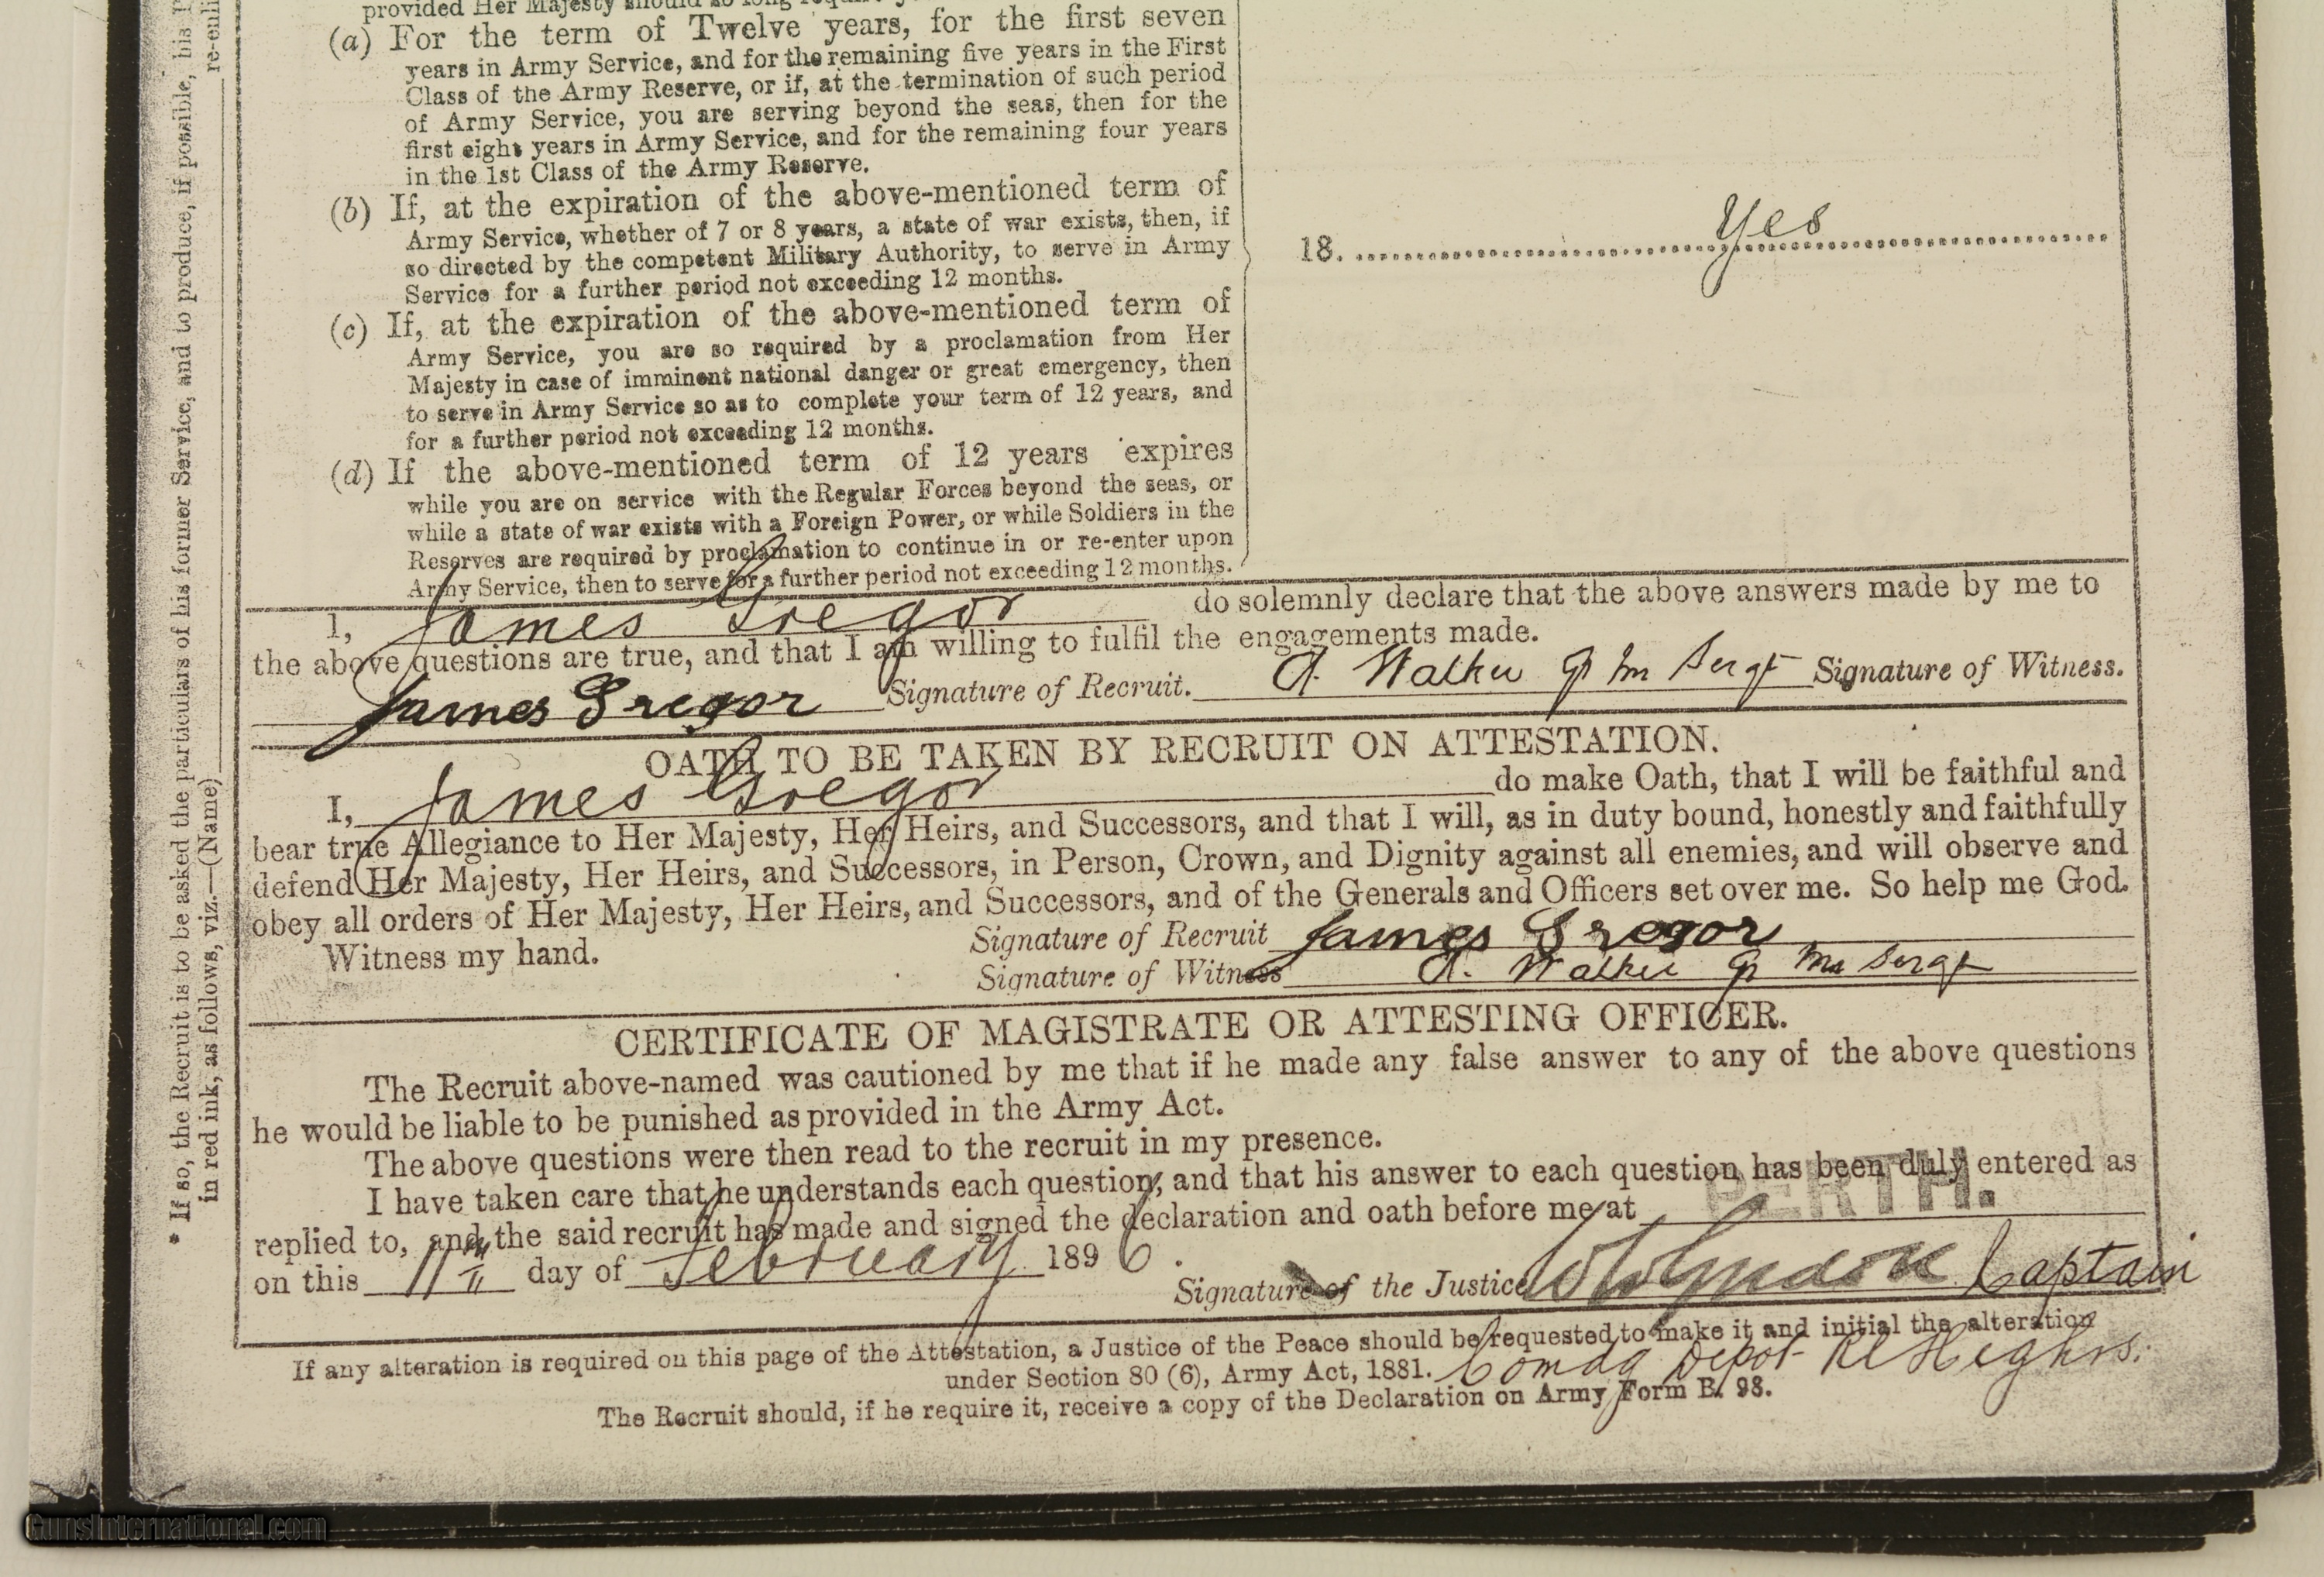 provided Her Majesty should so long require
(a) For the term of Twelve years, for the first seven
years in Army Service, and for the remaining five years in the First
Class of the Army Reserve, or if, at the termination of such period
of Army Service, you are serving beyond the seas, then for the
first eight years in Army Service, and for the remaining four years
in the 1st Class of the Army Reserve.
(b) If, at the expiration of the above-mentioned term of
Army Service, whether of 7 or 8 years, a state of war exists, then, if
so directed by the competent Military Authority, to serve in Army
Service for a further period not exceeding 12 months.
(c) If, at the expiration of the above-mentioned term of
Army Service, you are so required by a proclamation from Her
Majesty in case of imminent national danger or great emergency, then
to serve in Army Service so as to complete your term of 12 years, and
for a further period not exceeding 12 months.
(d) If the above-mentioned term of 12 years expires
while you are on service with the Regular Forces beyond the seas, or
while a state of war exists with a Foreign Power, or while Soldiers in the
Reserves are required by proclamation to continue in or re-enter upon
Army Service, then to serve for a further period not exceeding 12 months.
18. Yes
I, James Gregor do solemnly declare that the above answers made by me to
the above questions are true, and that I am willing to fulfil the engagements made.
James Gregor Signature of Recruit. A. Walker Qr Mr Sergt Signature of Witness.
OATH TO BE TAKEN BY RECRUIT ON ATTESTATION.
I, James Gregor do make Oath, that I will be faithful and
bear true Allegiance to Her Majesty, Her Heirs, and Successors, and that I will, as in duty bound, honestly and faithfully
defend Her Majesty, Her Heirs, and Successors, in Person, Crown, and Dignity against all enemies, and will observe and
obey all orders of Her Majesty, Her Heirs, and Successors, and of the Generals and Officers set over me. So help me God.
Witness my hand. Signature of Recruit James Gregor
Signature of Witness A. Walker Qr Mr Sergt
CERTIFICATE OF MAGISTRATE OR ATTESTING OFFICER.
The Recruit above-named was cautioned by me that if he made any false answer to any of the above questions
he would be liable to be punished as provided in the Army Act.
The above questions were then read to the recruit in my presence.
I have taken care that he understands each question, and that his answer to each question has been duly entered as
replied to, and the said recruit has made and signed the declaration and oath before me at PERTH.
on this 11th day of February 1896.
Signature of the Justice Captain
Comdg Depot Rl Highrs.
If any alteration is required on this page of the Attestation, a Justice of the Peace should be requested to make it and initial the alteration
under Section 80 (6), Army Act, 1881.
The Recruit should, if he require it, receive a copy of the Declaration on Army Form B. 98.
* If so, the Recruit is to be asked the particulars of his former Service, and to produce, if possible, his
in red ink, as follows, viz.—(Name) re-enli
GunsInternational.com